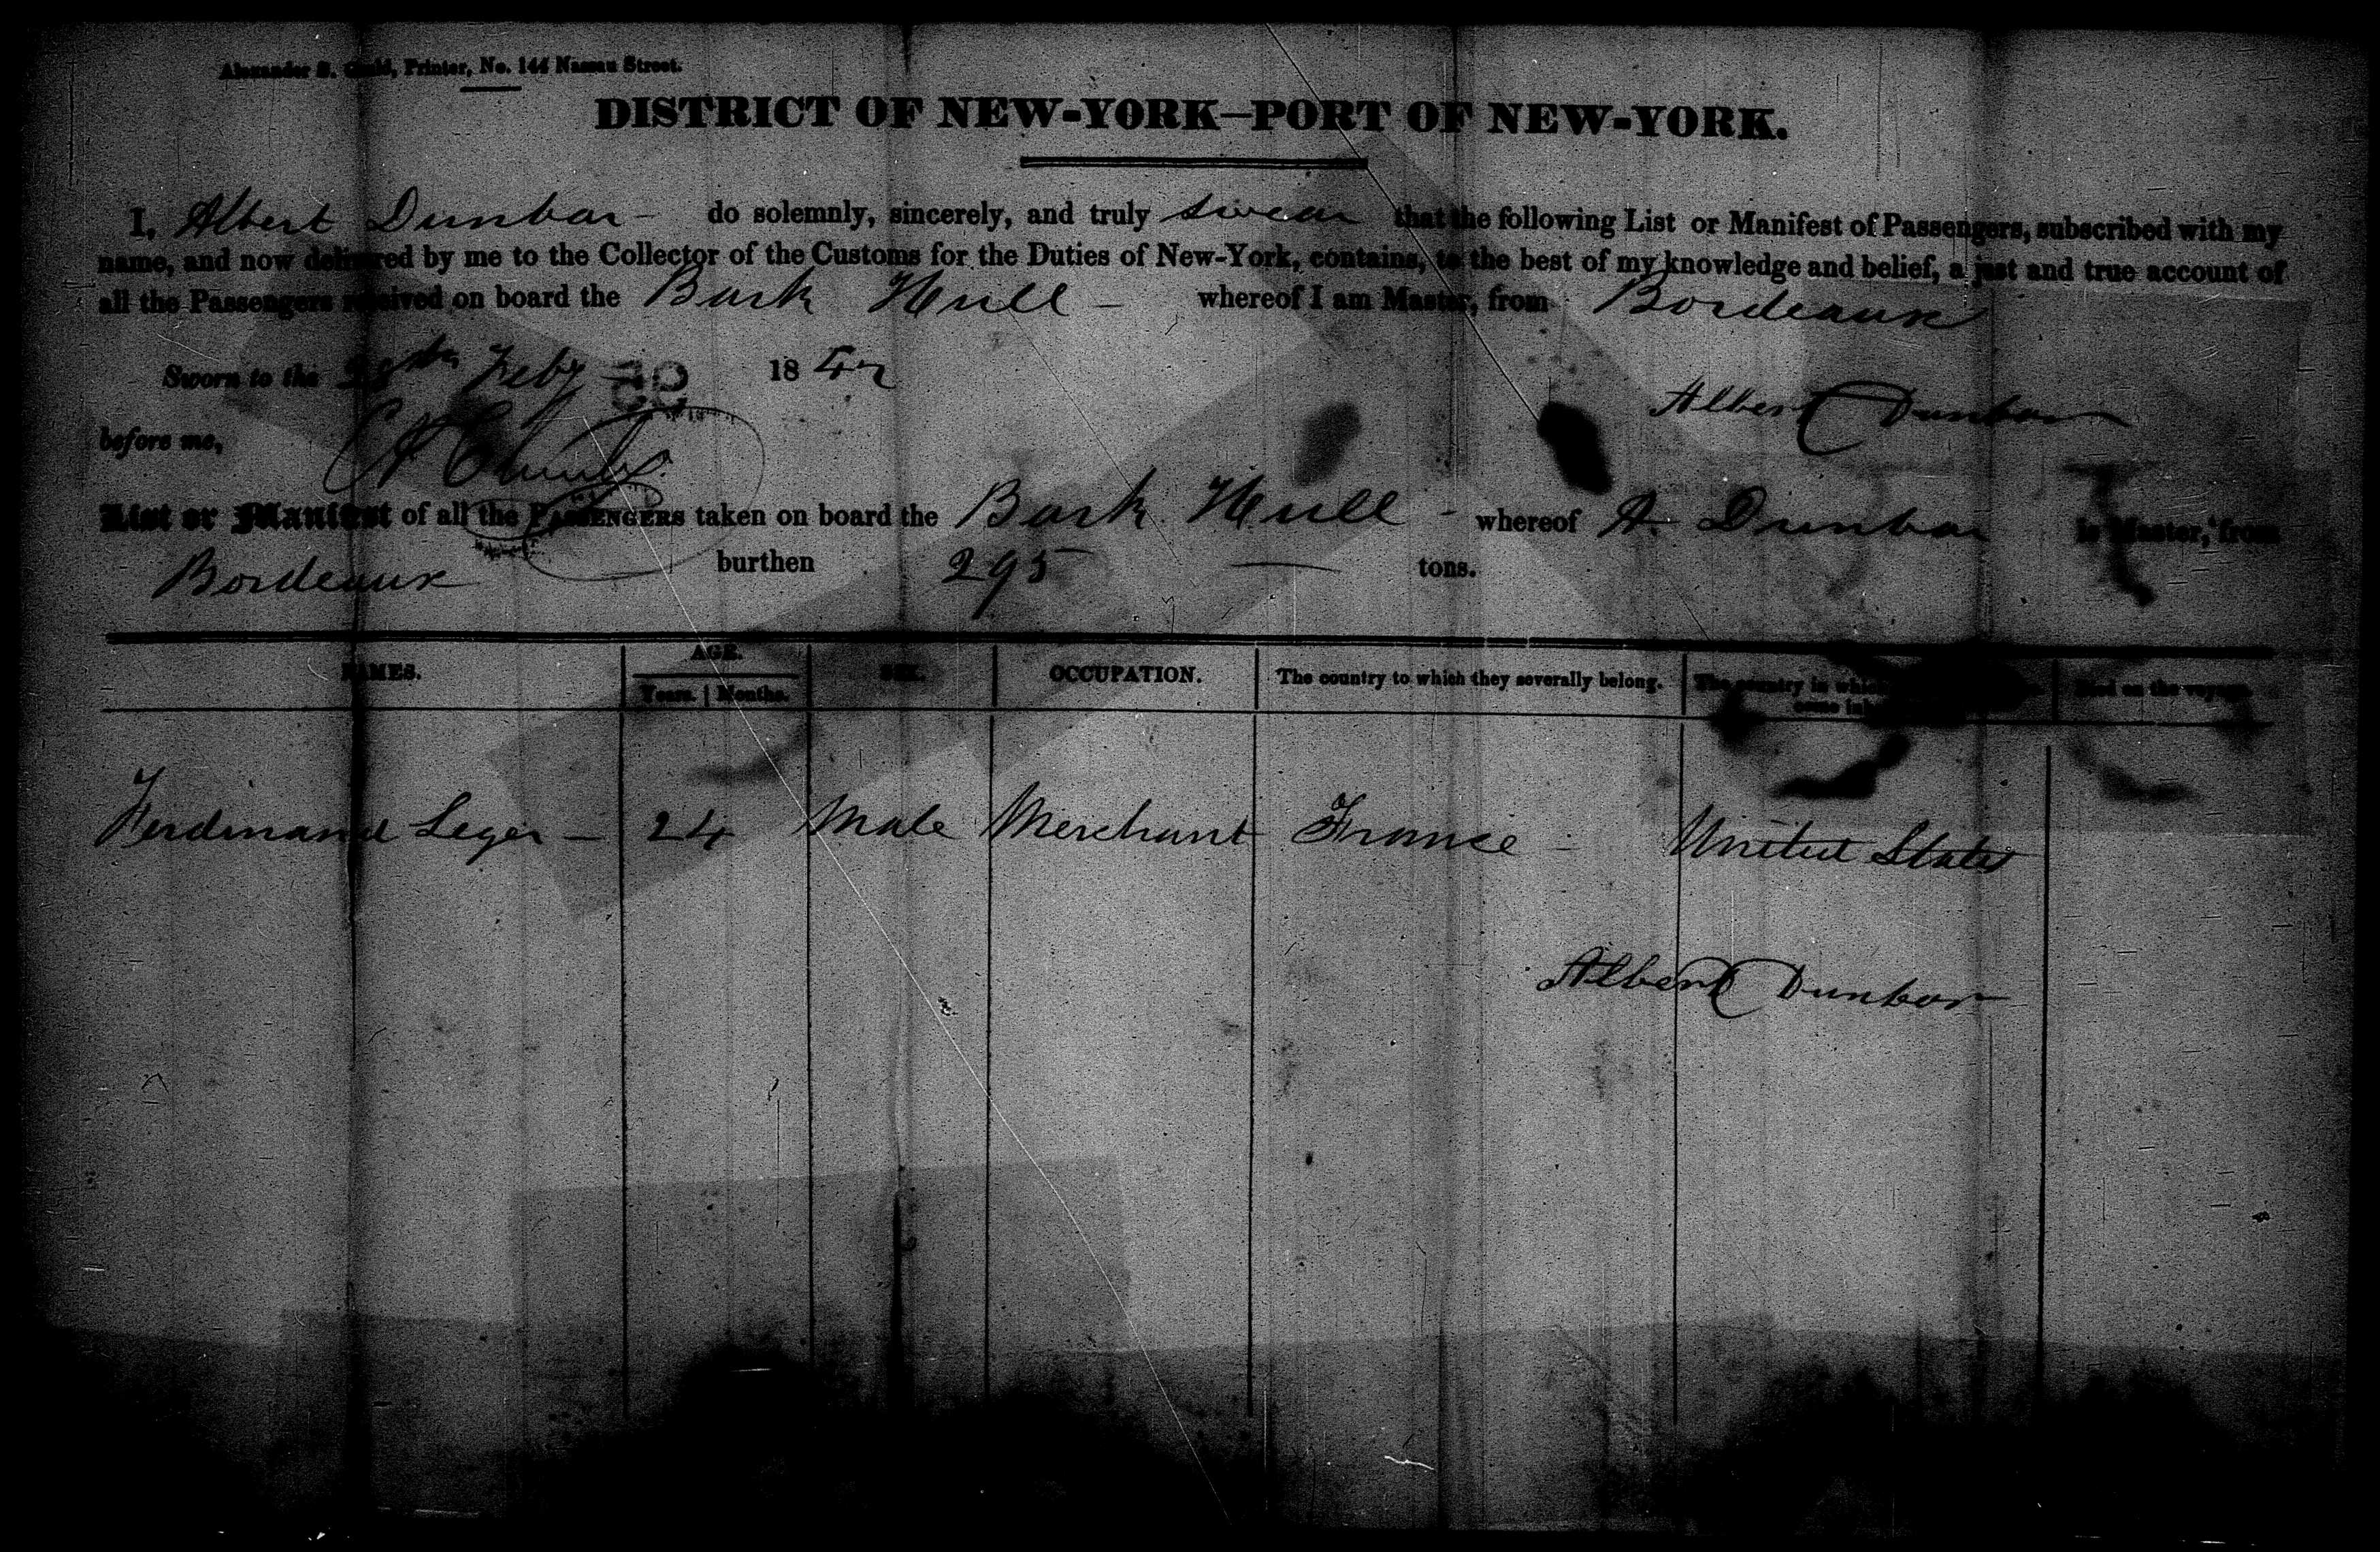 Alexander S. Gould, Printer, No. 144 Nassau Street.
DISTRICT OF NEW-YORK—PORT OF NEW-YORK.
I, Albert Dunbar - do solemnly, sincerely, and truly swear that the following List or Manifest of Passengers, subscribed with my
name, and now delivered by me to the Collector of the Customs for the Duties of New-York, contains, to the best of my knowledge and belief, a just and true account of
all the Passengers received on board the Bark Hull - whereof I am Master, from Bordeaux
Sworn to the 28th Feby 18
Albert Dunbar
before me,
List or Manifest of all the PASSENGERS taken on board the Bark Hull - whereof A. Dunbar is Master, from
Bordeaux burthen 295 — tons.
NAMES. AGE. SEX. OCCUPATION. The country to which they severally belong. The country in which Died on the voyage.
Years. Months.
Ferdinand Leger - 24 Male Merchant France - United States
Albert Dunbar